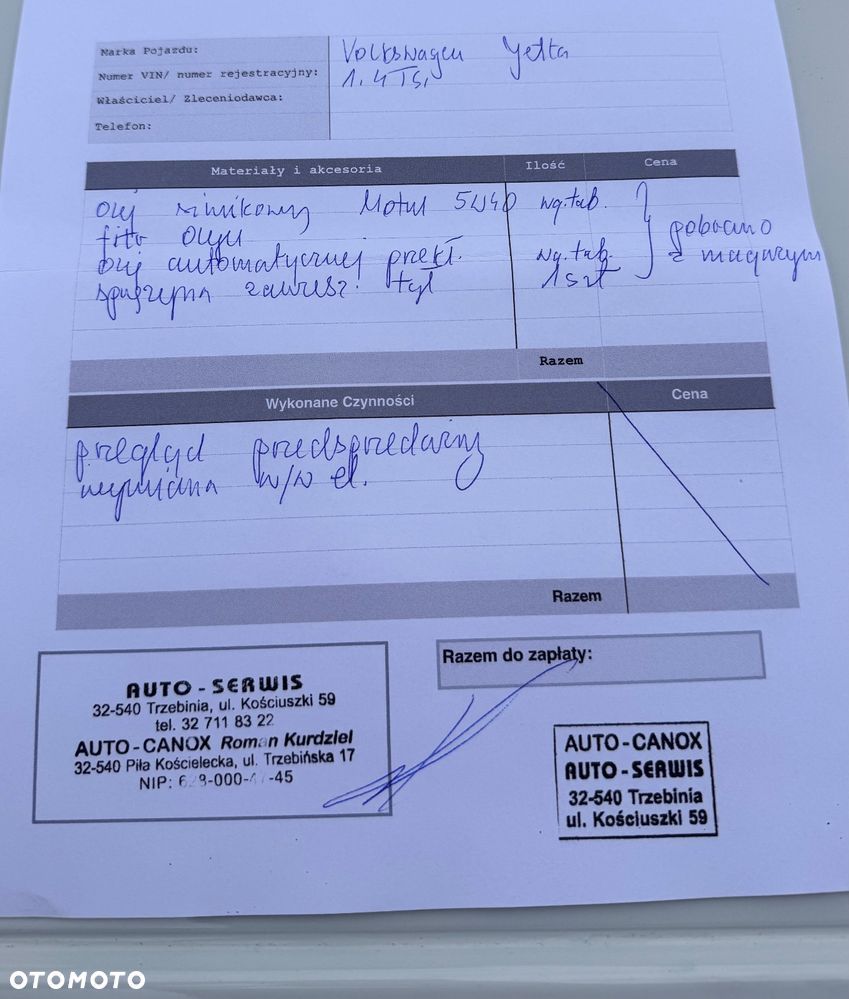 Marka Pojazdu: Volkswagen Jetta
Numer VIN/ numer rejestracyjny: 1.4 TSi
Właściciel/ Zleceniodawca:
Telefon:
Materiały i akcesoria Ilość Cena
olej silnikowy Motul 5W40 wg.tab.
filtr oleju
olej automatycznej przekł. wg.tab.
sprężyna zawiesz. tył 1szt
pobrano
z magazynu
Razem
Wykonane Czynności Cena
przegląd przedsprzedażny
wymiana w/w el.
Razem
AUTO - SERWIS
32-540 Trzebinia, ul. Kościuszki 59
tel. 32 711 83 22
AUTO-CANOX Roman Kurdziel
32-540 Piła Kościelecka, ul. Trzebińska 17
NIP: 628-000-47-45
Razem do zapłaty:
AUTO-CANOX
AUTO-SERWIS
32-540 Trzebinia
ul. Kościuszki 59
OTOMOTO